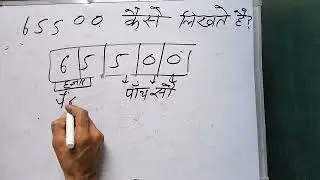 65500 कैसे लिखते है?
6 5 5 0 0
हजार पाँच सौ